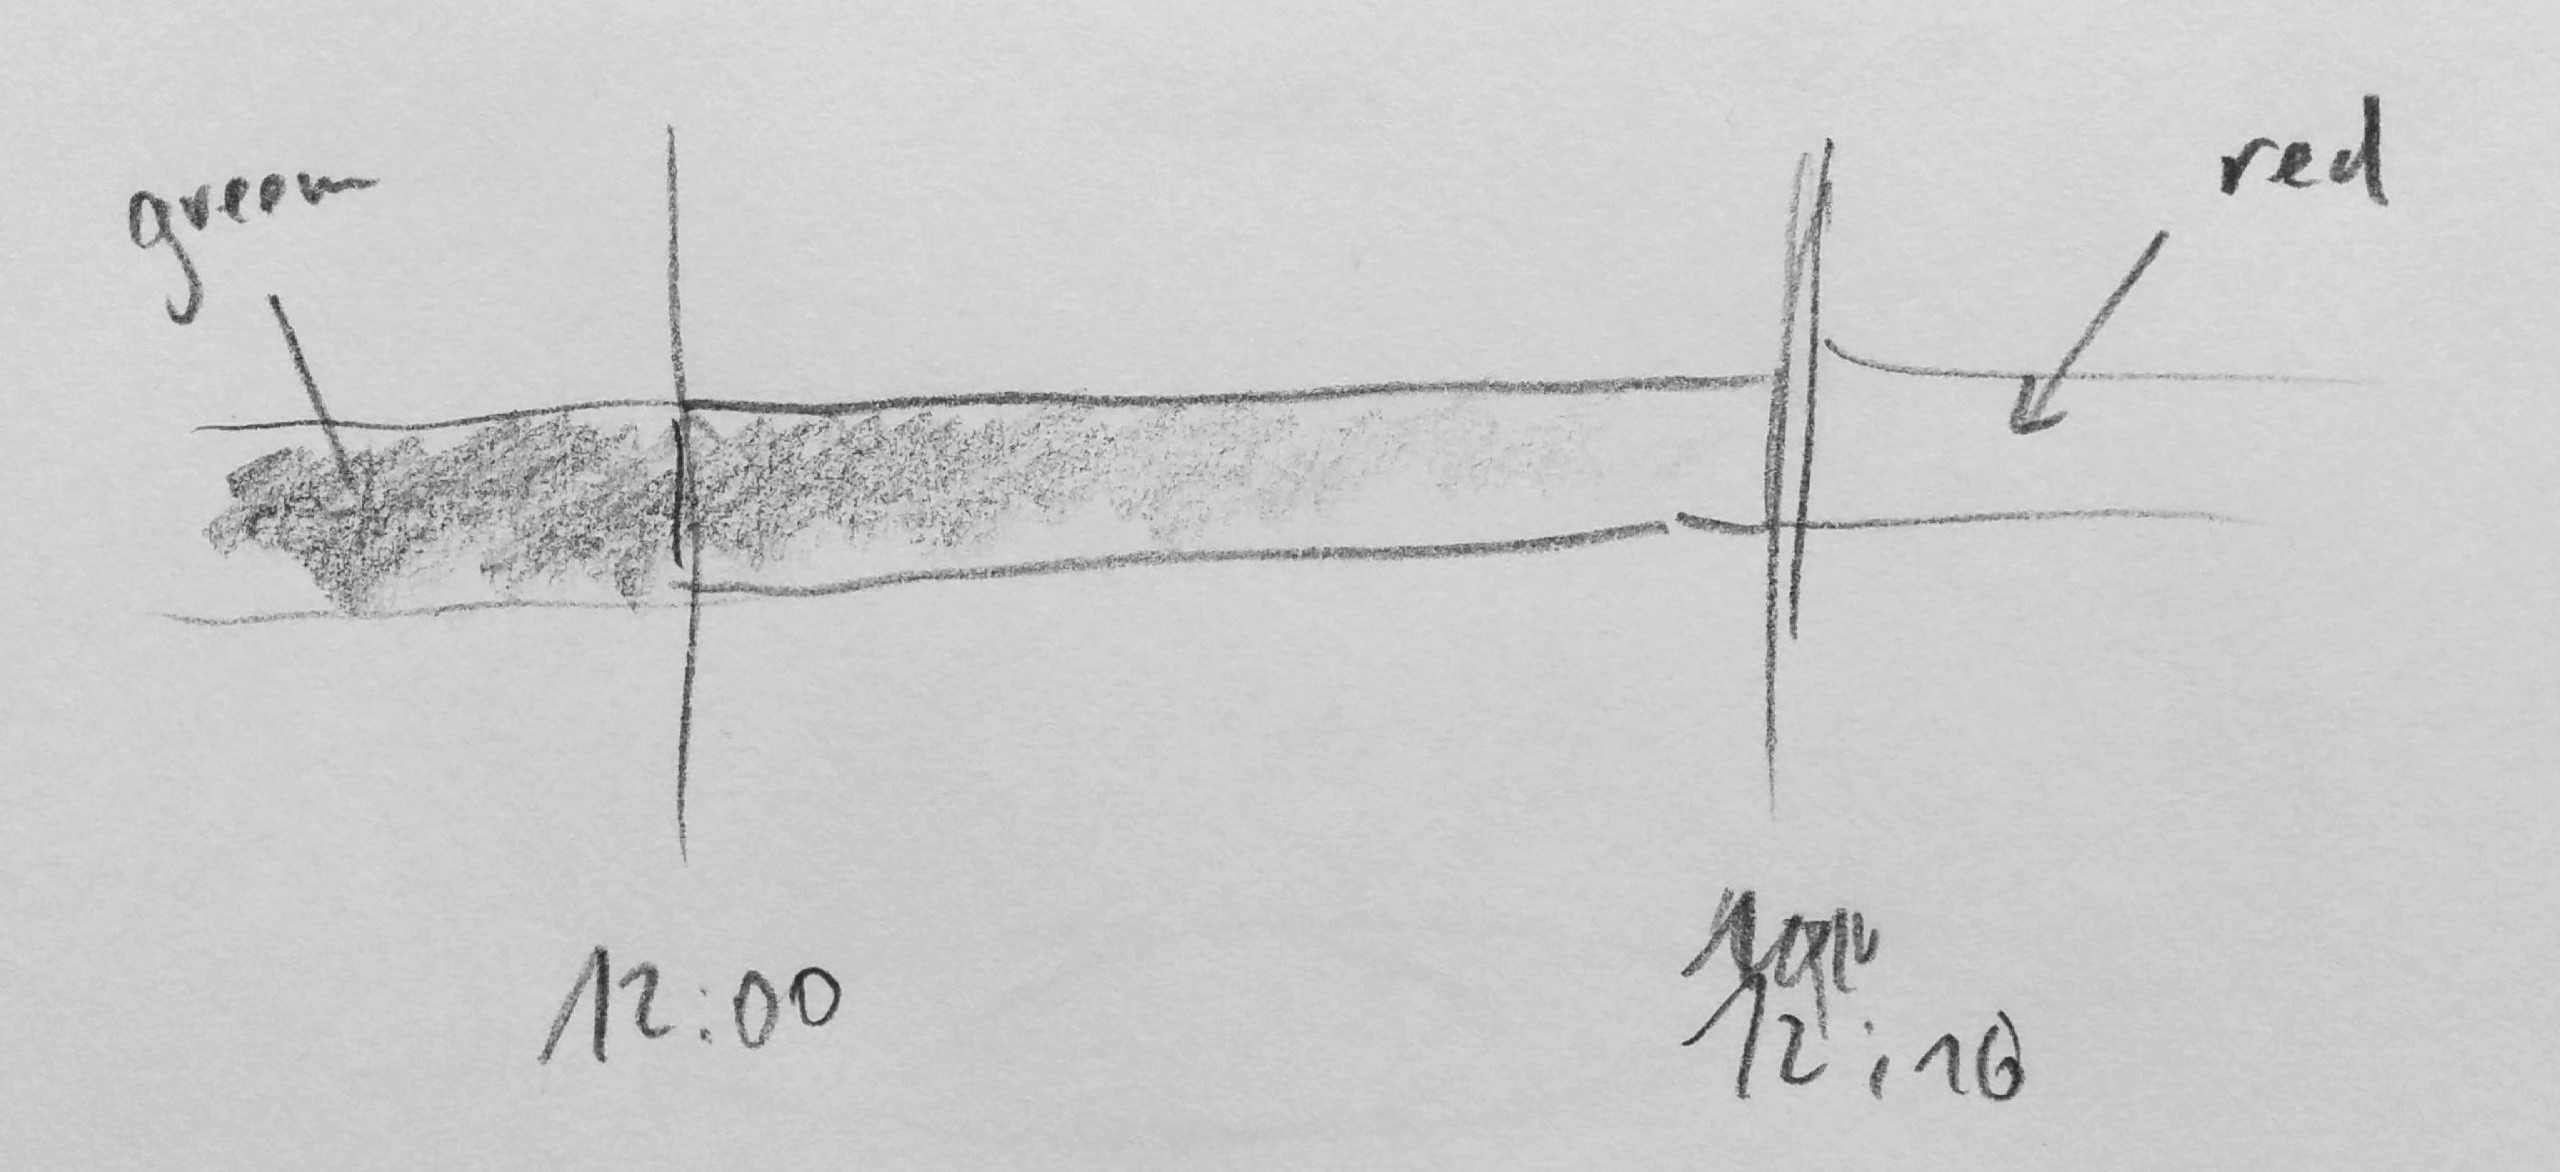 green
red
12:00
12:10